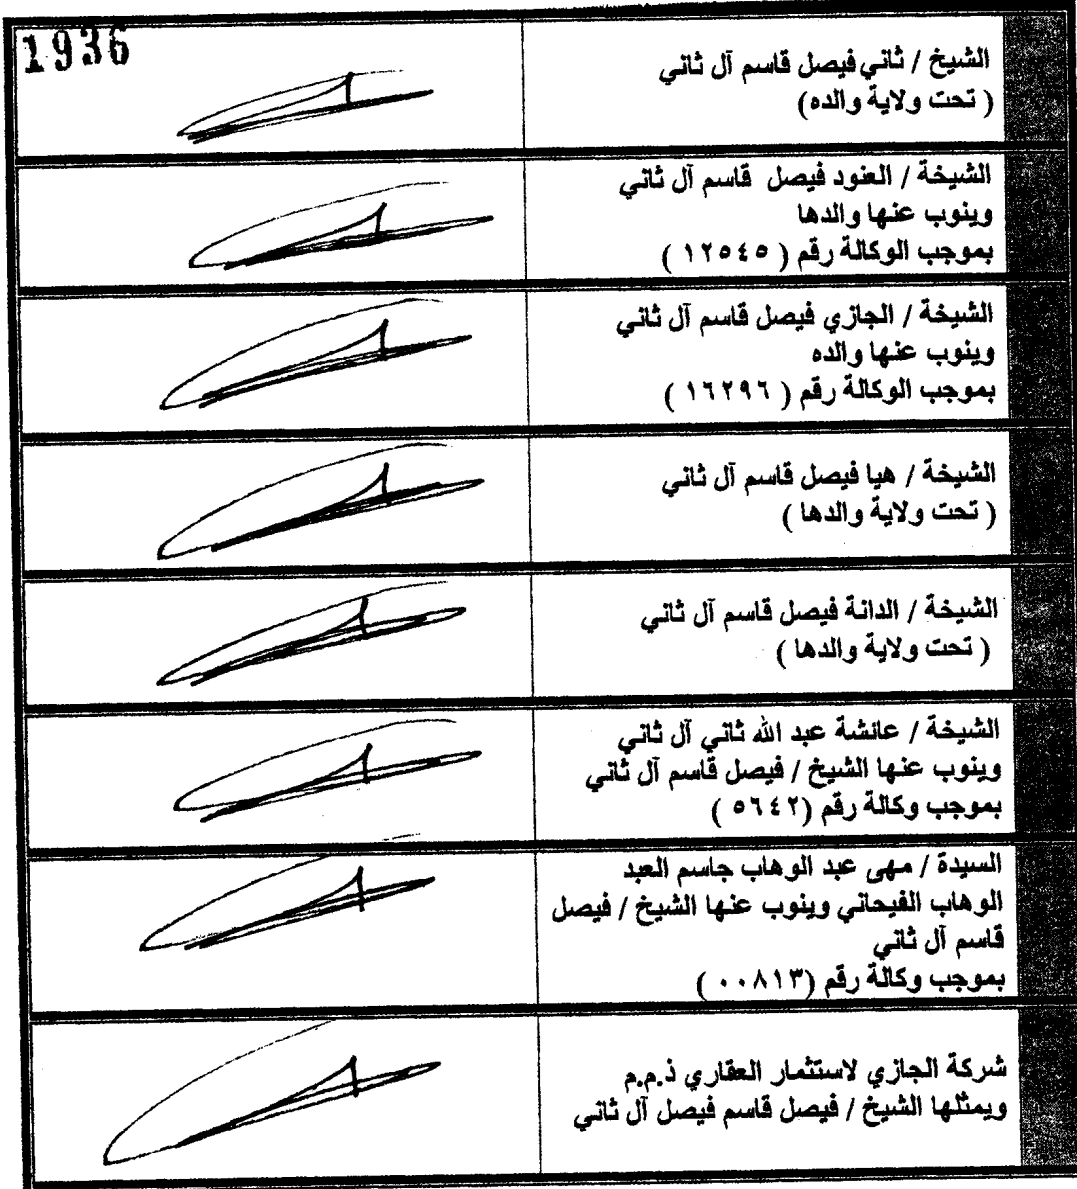 1936
الشيخ / ثاني فيصل قاسم آل ثاني
( تحت ولاية والده)
الشيخة / العنود فيصل قاسم آل ثاني
وينوب عنها والدها
بموجب الوكالة رقم ( ١٢٥٤٥ )
الشيخة / الجازي فيصل قاسم آل ثاني
وينوب عنها والده
بموجب الوكالة رقم ( ١٦٢٩٦ )
الشيخة / هيا فيصل قاسم آل ثاني
( تحت ولاية والدها )
الشيخة / الدانة فيصل قاسم آل ثاني
( تحت ولاية والدها )
الشيخة / عائشة عبد الله ثاني آل ثاني
وينوب عنها الشيخ / فيصل قاسم آل ثاني
بموجب وكالة رقم (٥٦٤٢ )
السيدة / مهى عبد الوهاب جاسم العبد
الوهاب الفيحاني وينوب عنها الشيخ / فيصل
قاسم آل ثاني
بموجب وكالة رقم (٠٠٨١٣ )
شركة الجازي لاستثمار العقاري ذ.م.م
ويمثلها الشيخ / فيصل قاسم فيصل آل ثاني